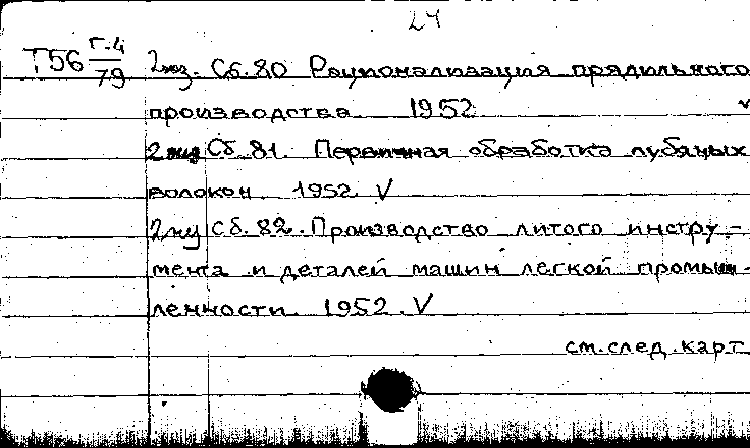 24
Т56 Г-4/79 2экз. Сб. 80 Рационализация прядильного
производства 1952 v
2экз Сб. 81. Первичная обработка лубяных
волокон 1952 V
2экз Сб. 82. Производство литого инстру-
мента и деталей машин легкой промыш-
ленности 1952. V
см. след. карт